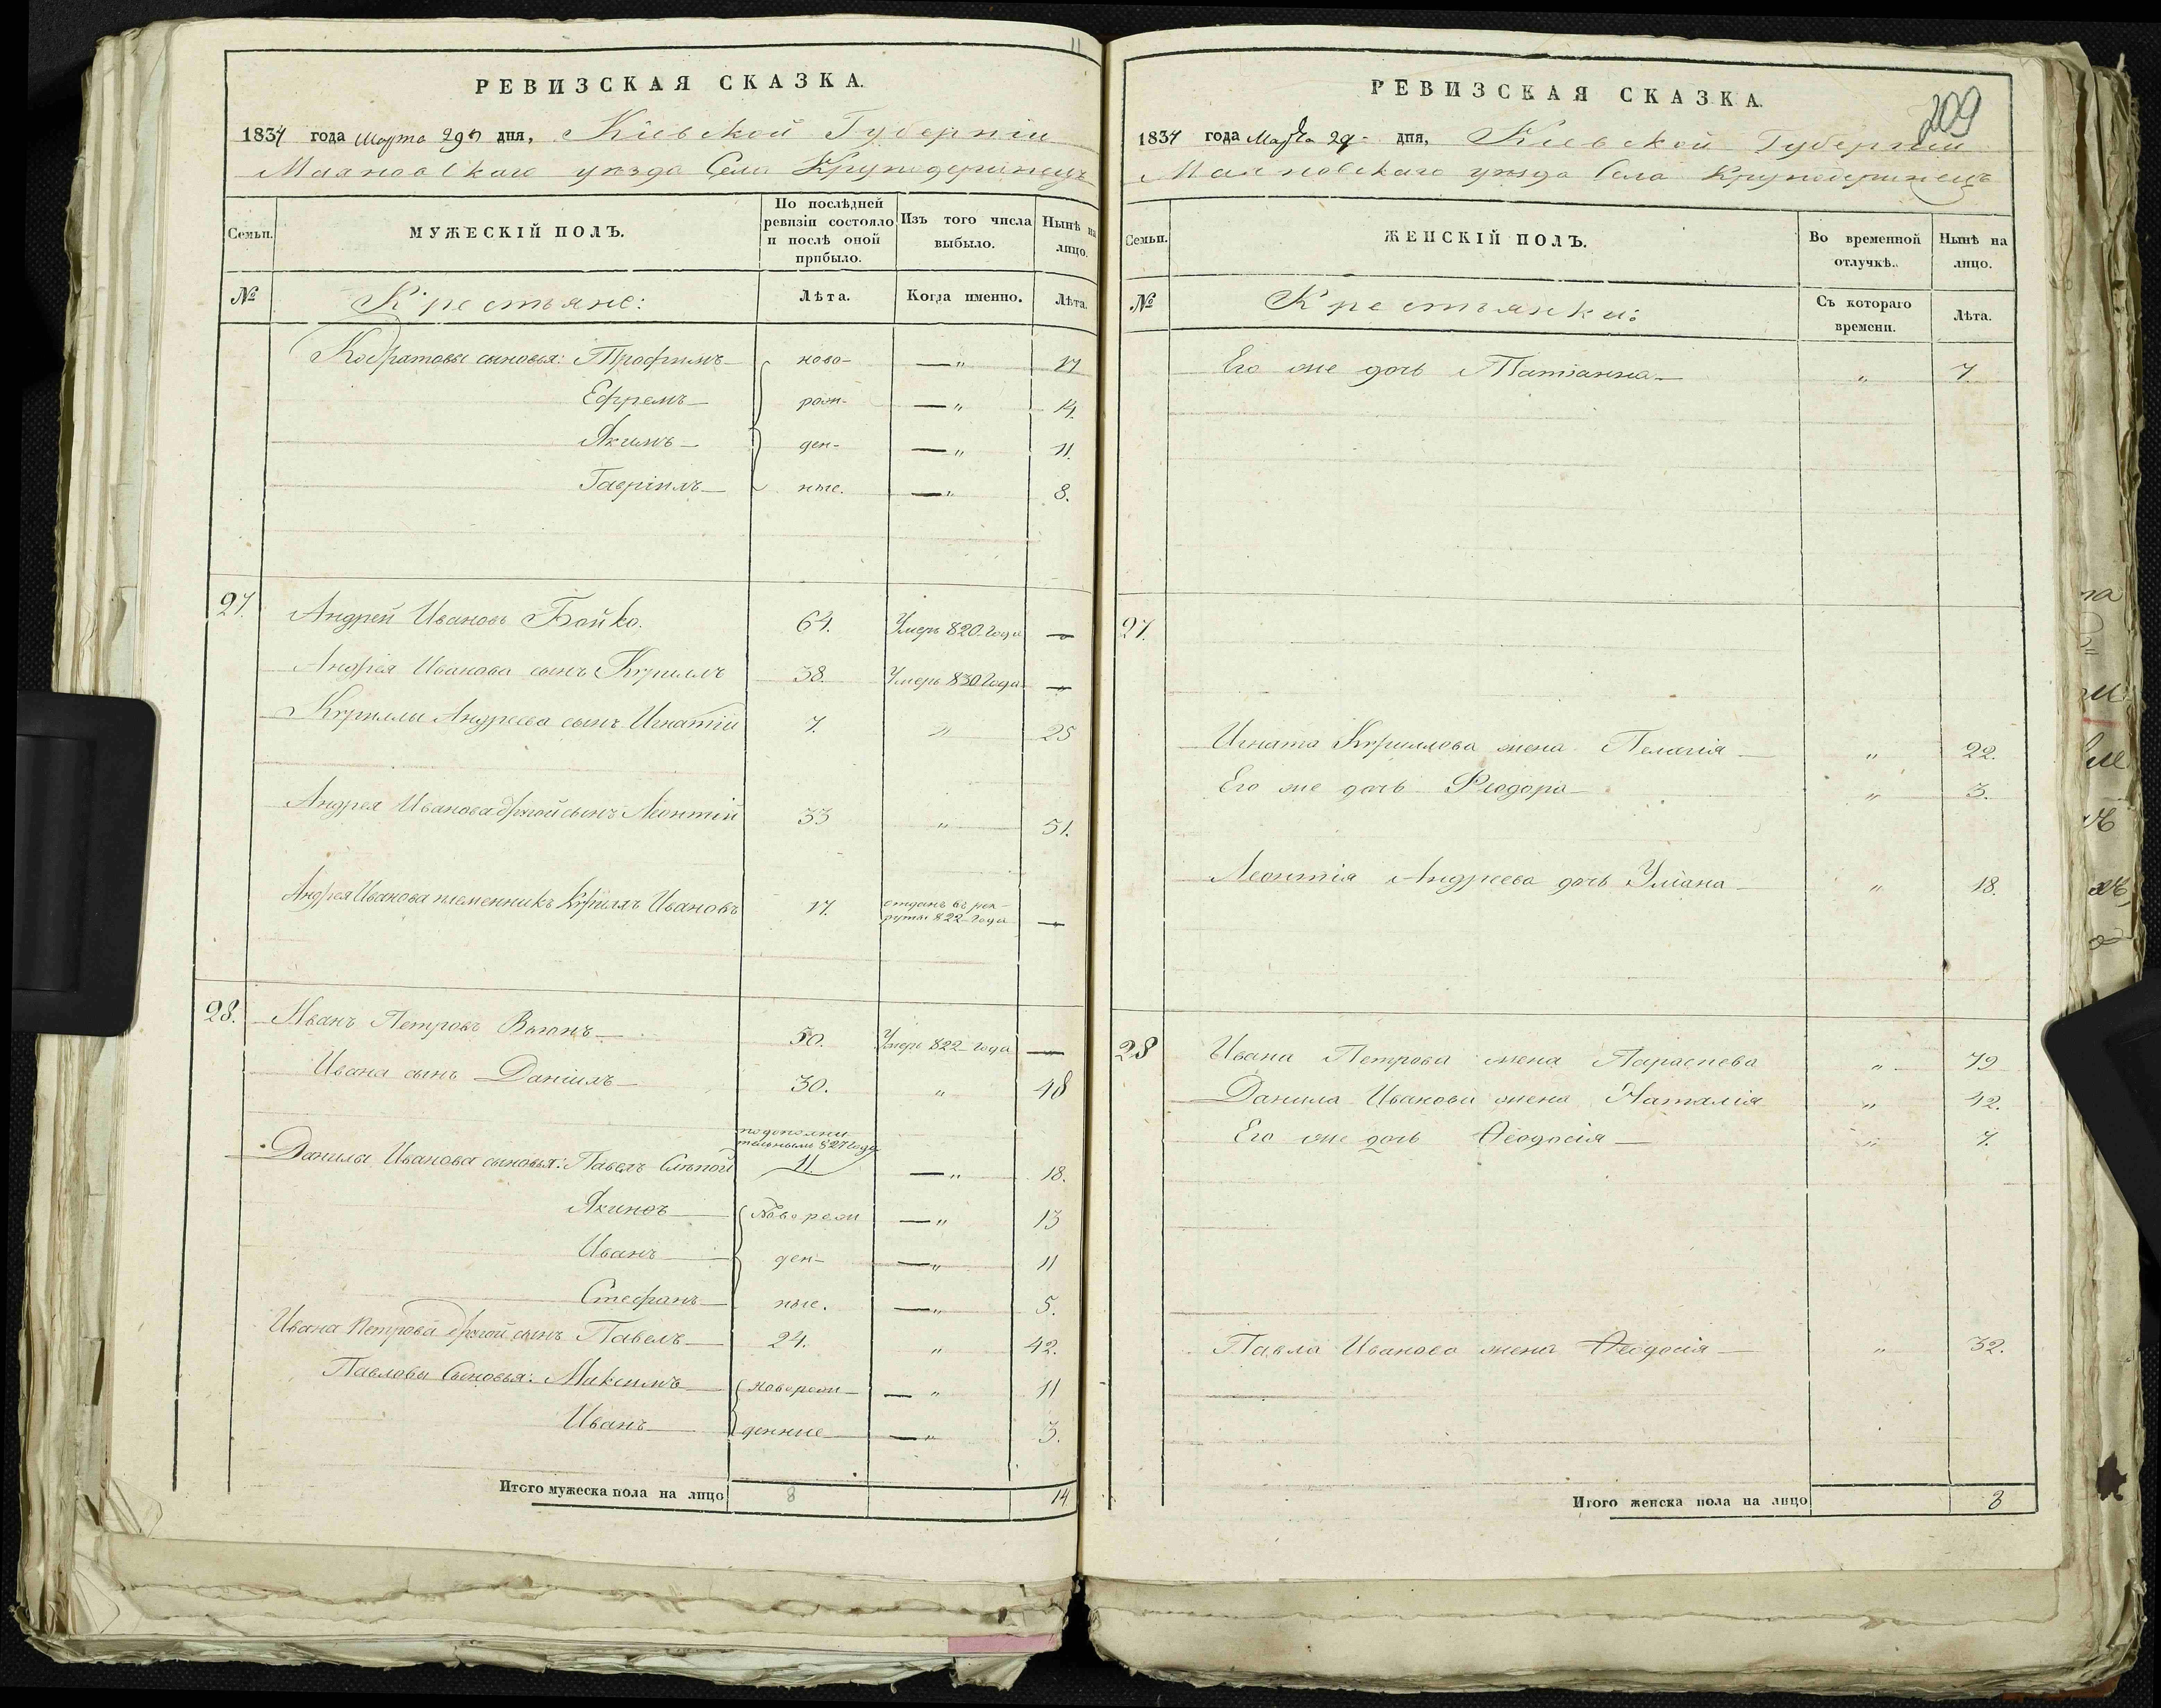 11
РЕВИЗСКАЯ СКАЗКА.
1834 года Марта 29го дня, Кіевской Губерніи
Махновскаго уезда Села Круподеринецъ
Семьи.
МУЖЕСКІЙ ПОЛЪ.
По послѣдней ревизіи состояло и послѣ оной прибыло.
Изъ того числа выбыло.
Нынѣ на лицо.
№
Крестьяне:
Лѣта.
Когда именно.
Лѣта.
Кодратовы сыновья: Трофимъ ново- — " 17
Ефремъ рож- — " 14.
Якимъ ден- — " 11.
Гавріилъ ные. — " 8.
27. Андрей Ивановъ Бойко. 64. Умеръ 820 Года —
Андрея Иванова сынъ Кирилъ 38. Умеръ 830 Года —
Кирилы Андреева сынъ Игнатій 7. " 25
Андрея Иванова другой сынъ Леонтій 33 " 51.
Андрея Иванова племенникъ Кирилъ Ивановъ 17. отданъ въ рек-
руты 822 Года —
28. Иванъ Петровъ 50. Умеръ 822 Года —
Ивана сынъ Даніилъ 30. " 48
подополни-
тельнымъ 827 Году
Данилы Иванова сыновья: Павелъ Слепой 11 — " 18.
Якимъ Новорож — " 13
Иванъ ден- — " 11
Стефанъ ные. — " 5.
Ивана Петрова другой сынъ Павелъ 24. " 42.
Павловы Сыновья: Максимъ новорож — " 11
Иванъ денные — " 3.
Итого мужеска пола на лицо 8 14
209
РЕВИЗСКАЯ СКАЗКА.
1834 года Марта 29- дня, Кіевской Губерніи
Махновскаго уезда Села Круподеринецъ
Семьи.
ЖЕНСКІЙ ПОЛЪ.
Во временной отлучкѣ.
Нынѣ на лицо.
№
Крестьянки:
Съ котораго времени.
Лѣта.
Его же дочь Татіанна " 7.
27.
Игната Кирилова жена Пелагія " 22.
Его же дочь Феодора " 3.
Леонтія Андреева дочь Уліана " 18.
28 Ивана Петрова жена Параскева " 79
Данила Иванова жена Наталія " 42.
Его же дочь Ѳеодосія " 7.
Павла Иванова жена Ѳеодосія " 32.
Итого женска пола на лицо 8